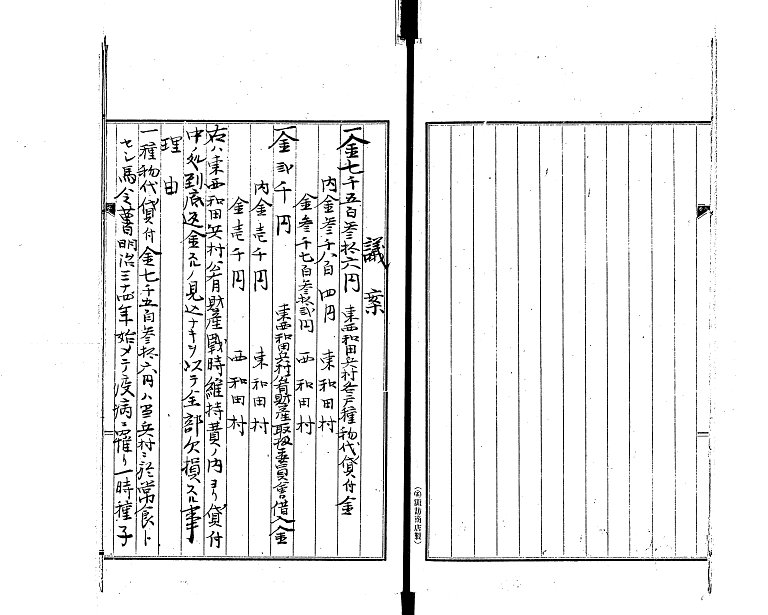 議案
一金七千五百参拾六円 東西和田兵村各戸種物代貸付金
内金参千八百四円 東和田村
金参千七百参拾弐円 西和田村
一金弐千円 東西和田兵村公有財産取扱委員会借入金
内金壱千円 東和田村
金壱千円 西和田村
右ハ東西和田兵村公有財産戦時維持費ノ内ヨリ貸付
中ノ処到底返金スルノ見込ナキヲ以テ全部欠損スル事
理由
一種物代貸付金七千五百参拾六円ハ当兵村ニ於常食ト
セシ馬令薯明治三十四年始メテ疫病ニ罹リ一時種子